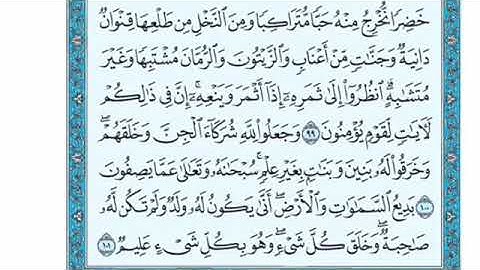 خَضِرًا نُّخْرِجُ مِنْهُ حَبًّا مُّتَرَاكِبًا وَمِنَ النَّخْلِ مِن طَلْعِهَا قِنْوَانٌ
دَانِيَةٌ وَجَنَّاتٍ مِّنْ أَعْنَابٍ وَالزَّيْتُونَ وَالرُّمَّانَ مُشْتَبِهًا وَغَيْرَ
مُتَشَابِهٍ ۗ انظُرُوا إِلَىٰ ثَمَرِهِ إِذَا أَثْمَرَ وَيَنْعِهِ ۚ إِنَّ فِي ذَٰلِكُمْ
لَآيَاتٍ لِّقَوْمٍ يُؤْمِنُونَ ٩٩ وَجَعَلُوا لِلَّهِ شُرَكَاءَ الْجِنَّ وَخَلَقَهُمْ ۖ
وَخَرَقُوا لَهُ بَنِينَ وَبَنَاتٍ بِغَيْرِ عِلْمٍ ۚ سُبْحَانَهُ وَتَعَالَىٰ عَمَّا يَصِفُونَ
١٠٠ بَدِيعُ السَّمَاوَاتِ وَالْأَرْضِ ۖ أَنَّىٰ يَكُونُ لَهُ وَلَدٌ وَلَمْ تَكُن لَّهُ
صَاحِبَةٌ ۖ وَخَلَقَ كُلَّ شَيْءٍ ۖ وَهُوَ بِكُلِّ شَيْءٍ عَلِيمٌ ١٠١